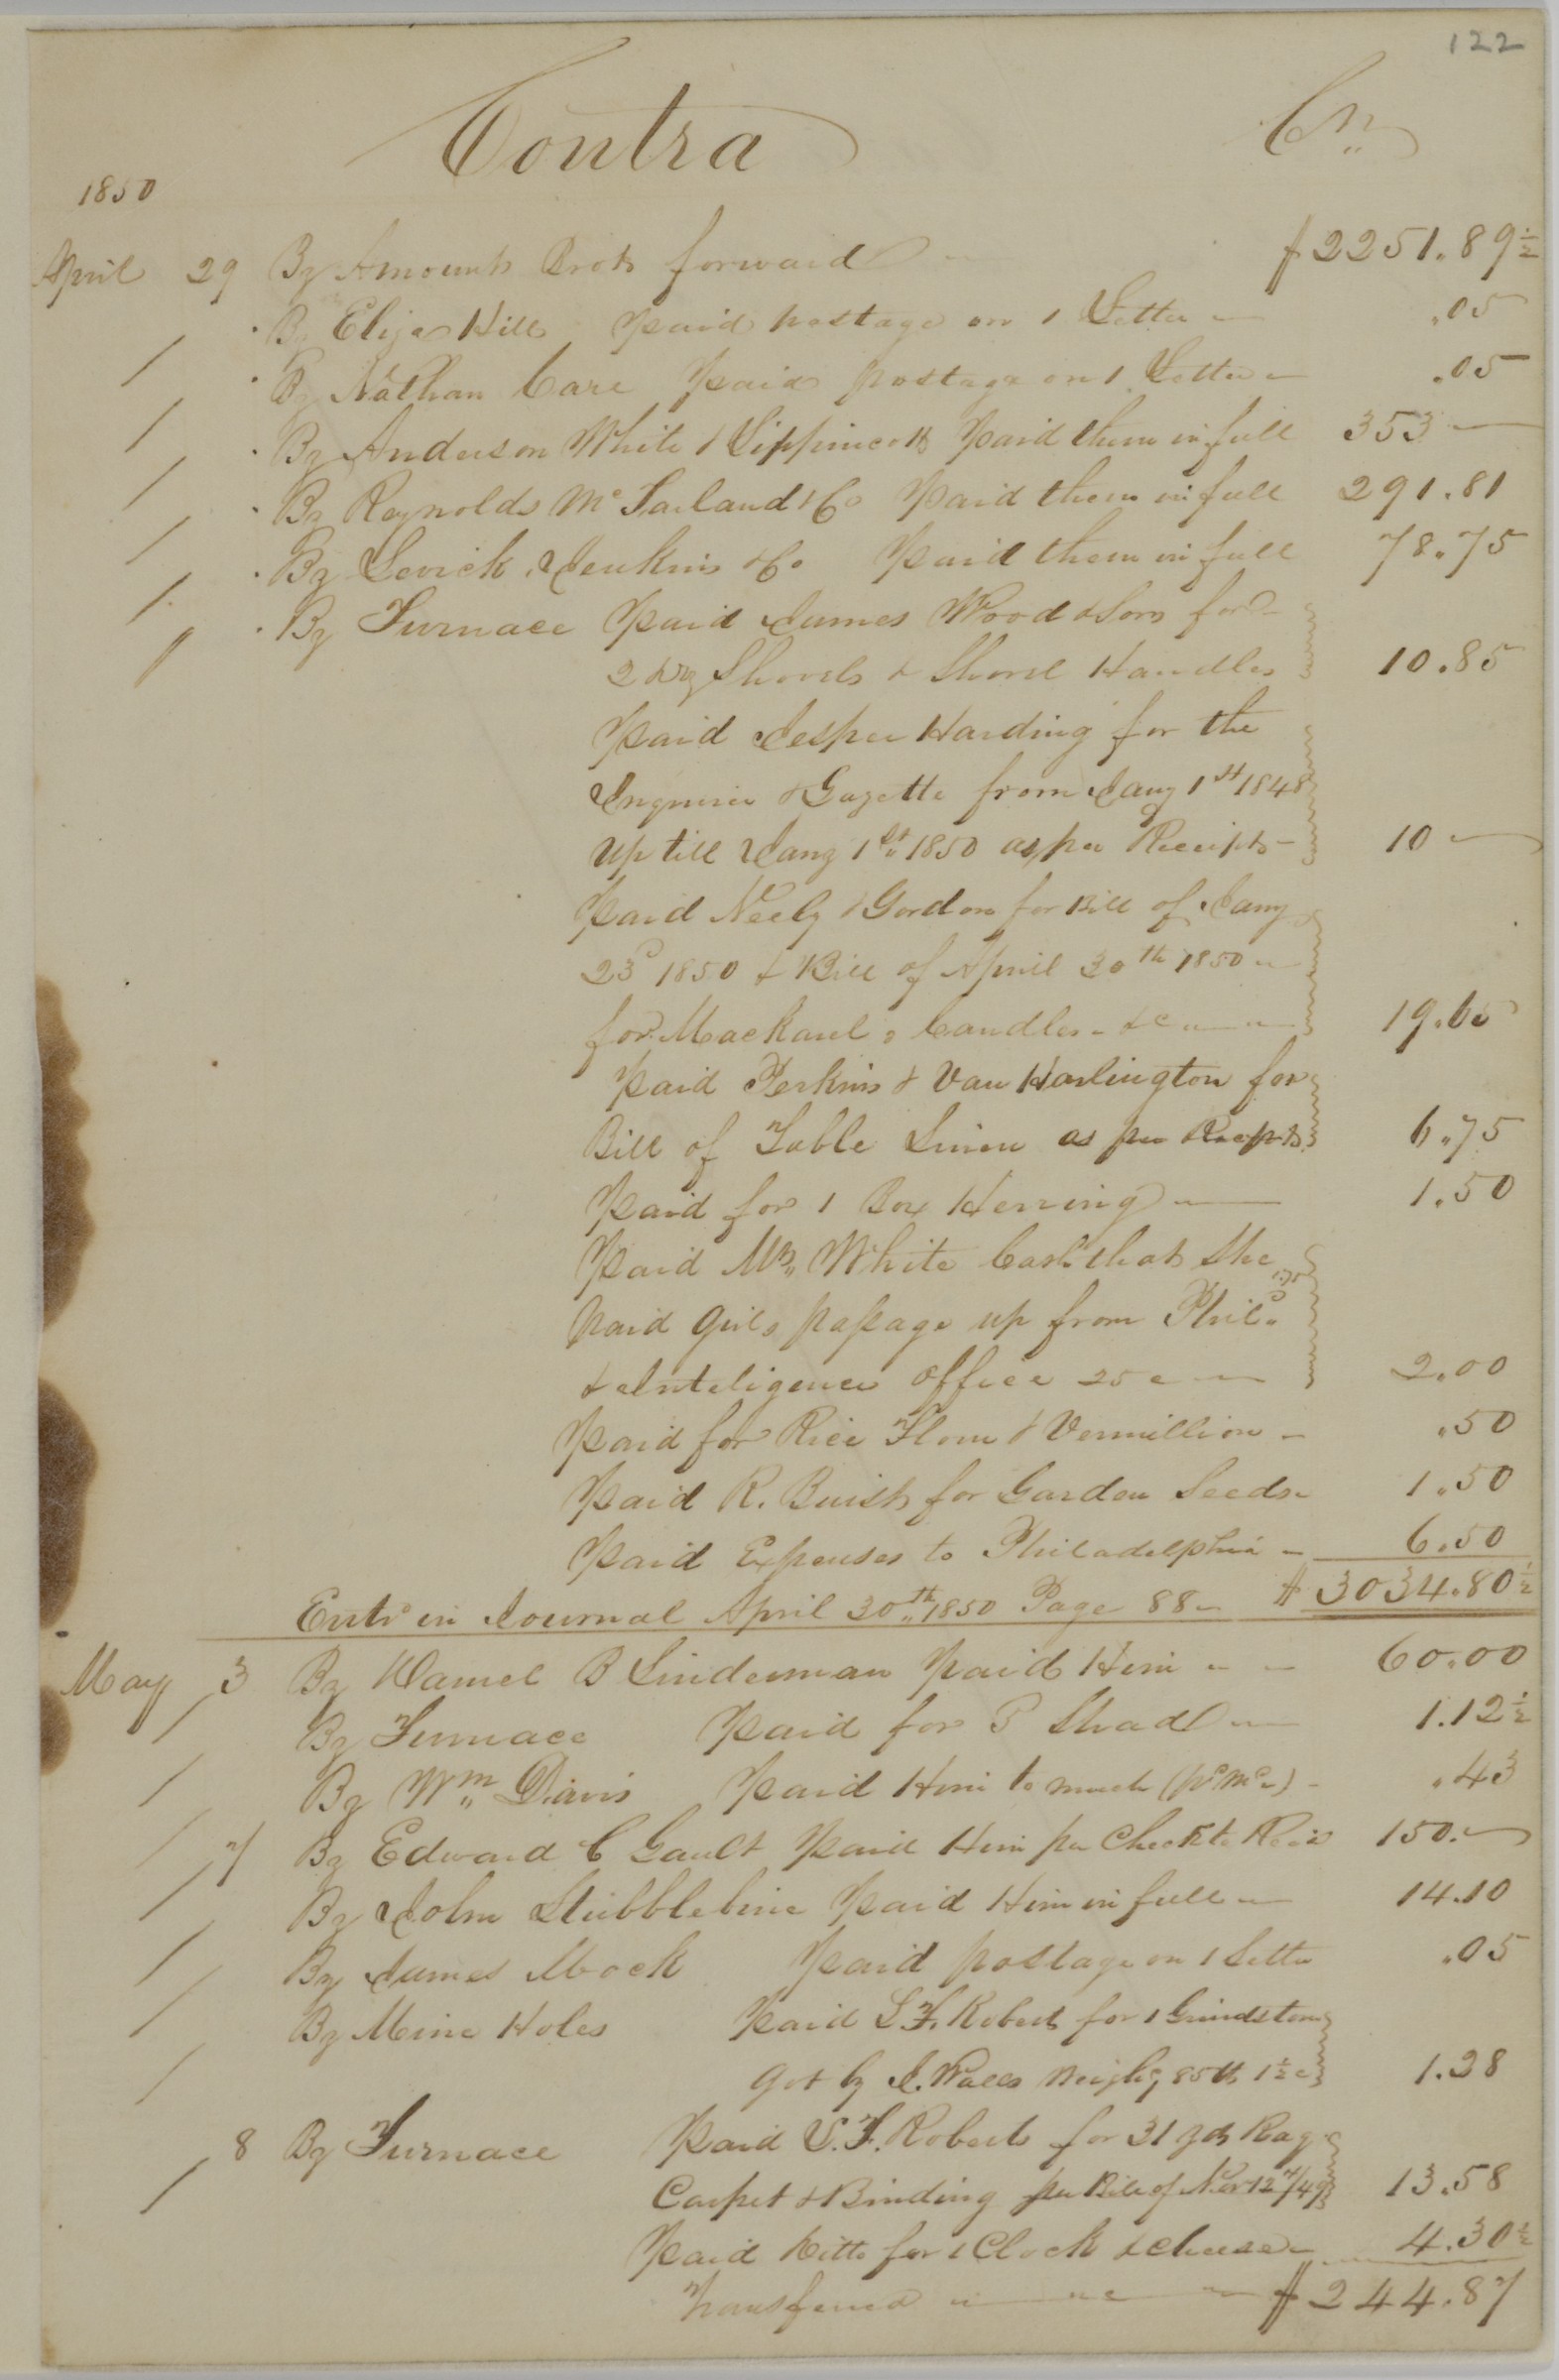 122
Contra Cr.
1850
April 29 By Amount Brot forward $2251.89½
By Eliza Hill paid postage on 1 Letter .05
By Nathan Care paid postage on 1 Letter .05
By Anderson White & Lippincott Paid them in full 353
By Reynolds McFarland & Co Paid them in full 291.81
By Levick, Jenkins & Co Paid them in full 78.75
By Furnace Paid James Wood & Son for
2 dz Shovels & Shovel Handles 10.85
Paid Jesper Harding for the
Inquirer & Gazette from Jany 1st 1848
up till Jany 1st 1850 as per Receipt 10
Paid Neely & Gordon for Bill of Jany
23d 1850 & Bill of April 30th 1850
for Mackarel, Candles &c 19.65
Paid Perkins & Van Harlington for
Bill of Table Linen as per Recpt 6.75
Paid for 1 Box Herring 1.50
Paid Mrs. White Cash that she
paid girls passage up from Phild. 1.75
& Inteligence office 25c 2.00
Paid for Rice Flour & Vermillion .50
Paid R. Buist for Garden Seeds 1.50
Paid Expenses to Philadelphia 6.50
Entd in Journal April 30th 1850 Page 88 $3034.80½
May 3 By Daniel B Linderman paid Him 60.00
By Furnace Paid for 5 Shad 1.12½
By Wm Davis Paid Him to much .43
7 By Edward C Gault Paid Him per Check to 150.
By John Stubblebine Paid Him in full 14.10
By James Mock Paid postage on 1 Letter .05
By Mine Holes Paid S. F. Robert for 1 Grindstone
got by J. Walls weighg 85 lb 1½c 1.28
8 By Furnace Paid S. F. Roberts for 31 yds Rag
Carpet & Binding per Bill of Nov 12th/49 13.58
Paid Ditto for 1 Clock & cheese 4.30½
Transferred $244.87